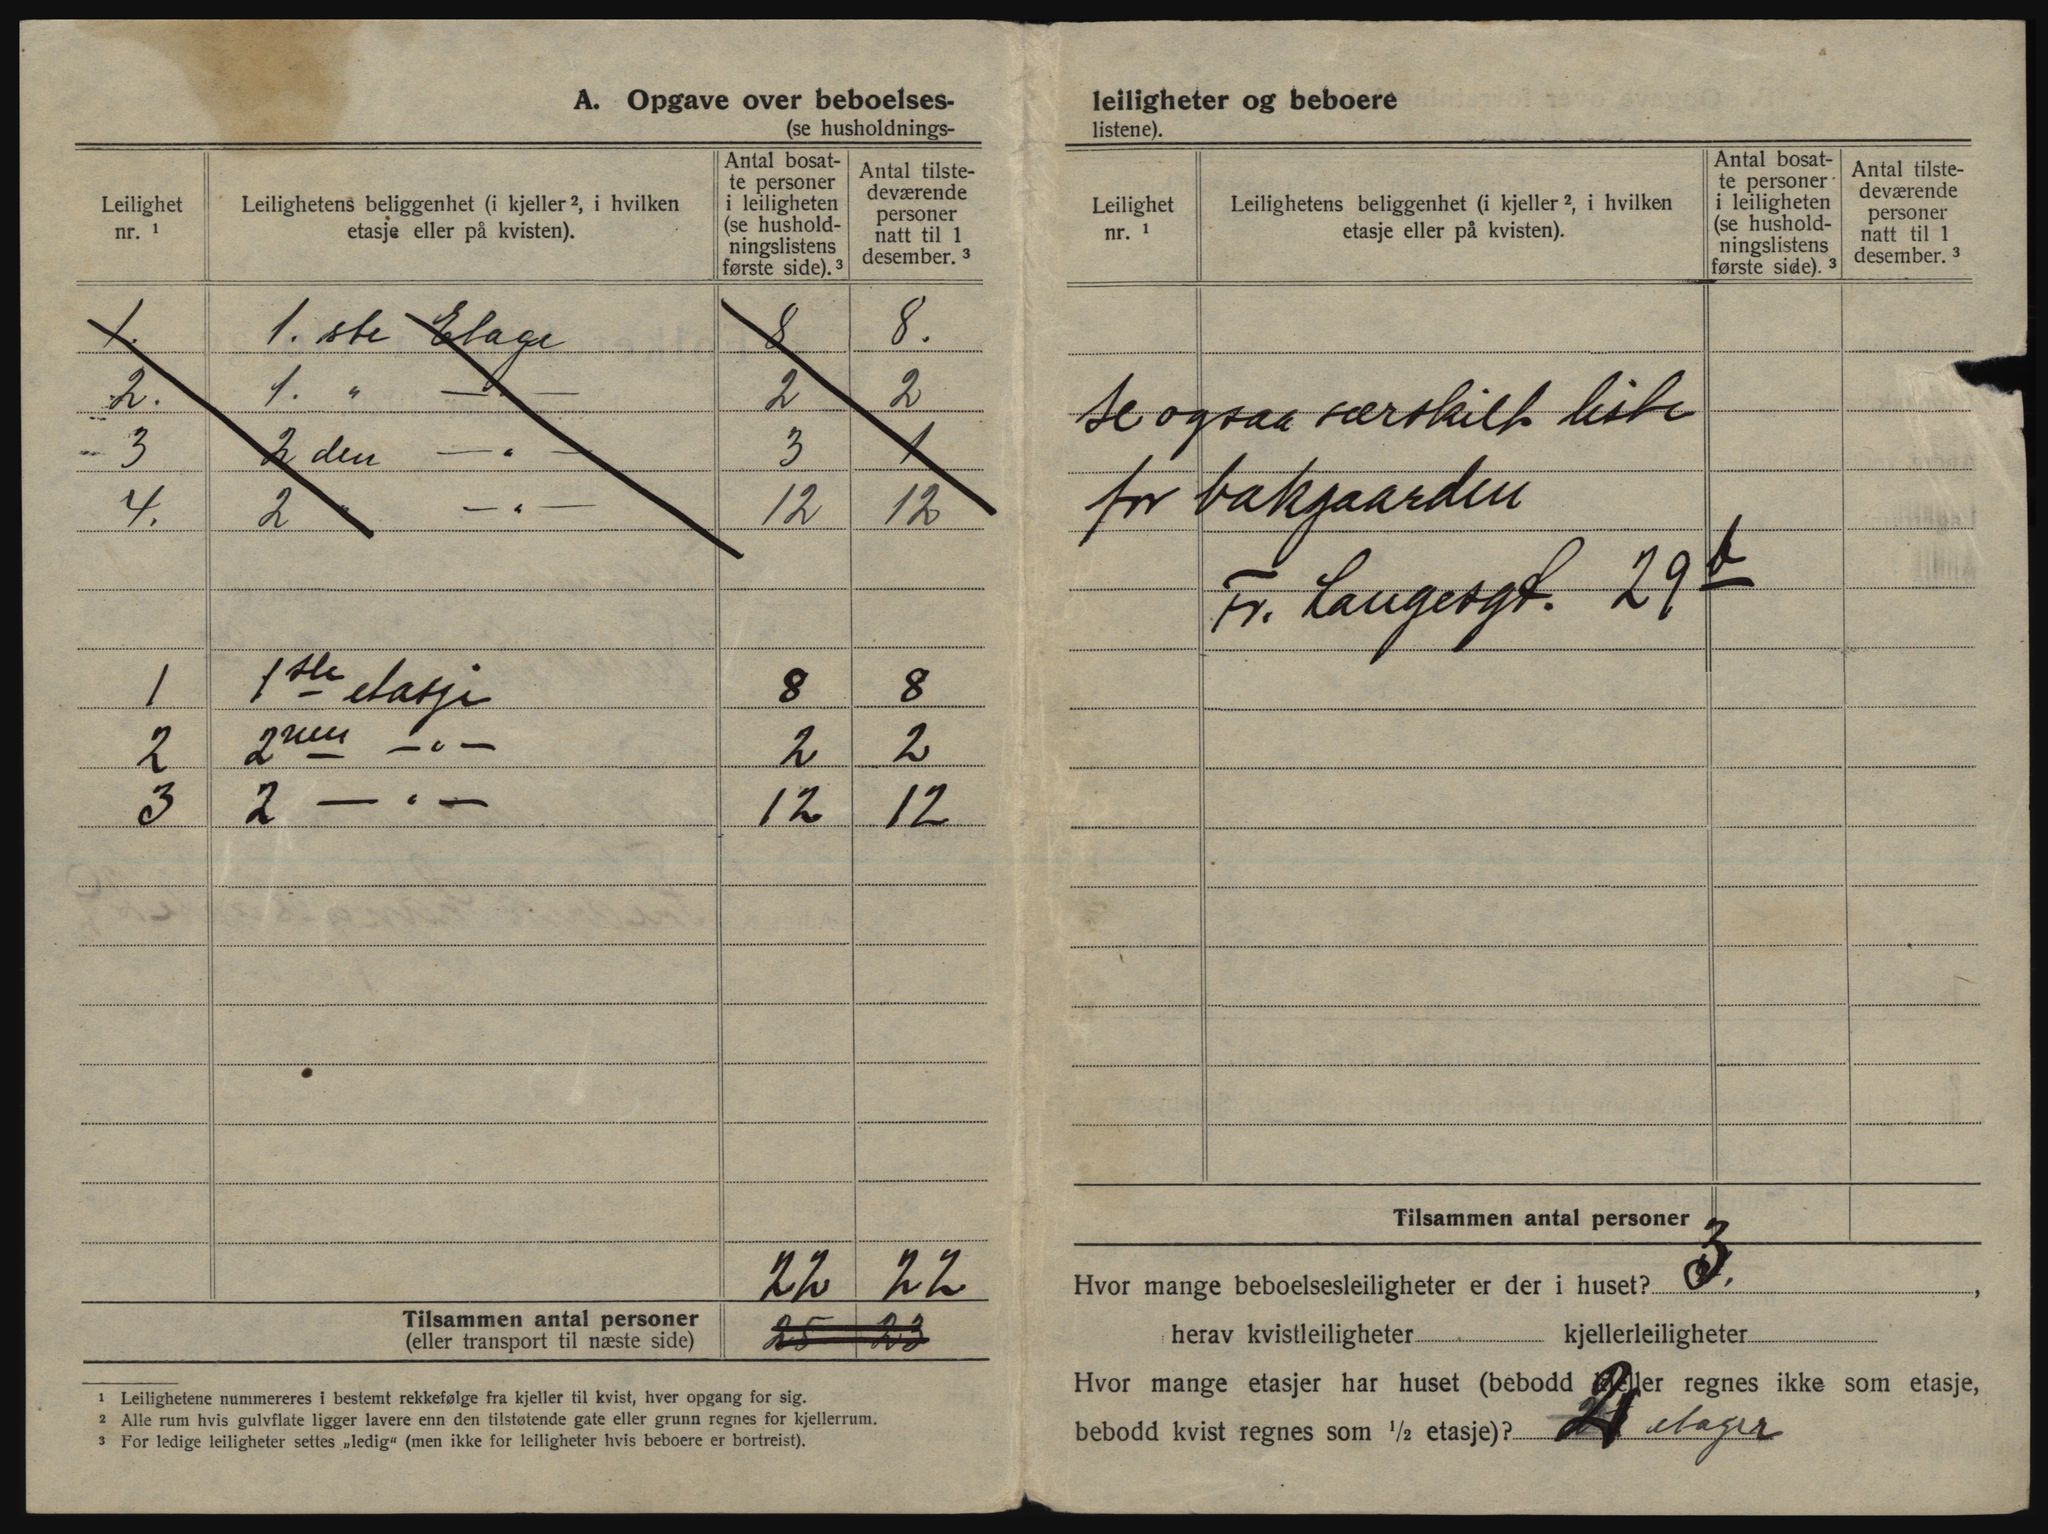 A. Opgave over beboelses-
(se husholdnings-
Leilighet nr. ¹
Leilighetens beliggenhet (i kjeller ², i hvilken etasje eller på kvisten).
Antal bosat-
te personer
i leiligheten
(se hushold-
ningslistens
første side). ³
Antal tilste-
deværende
personer
natt til 1
desember. ³
1. 1. ste Etage 8 8.
2. 1. " — " — 2 2
3 2 den — " — 3 1
4. 2 " — " — 12 12
1 1ste etasje 8 8
2 2nen — " — 2 2
3 2 — " — 12 12
22 22
Tilsammen antal personer
(eller transport til næste side) 25 23
¹ Leilighetene nummereres i bestemt rekkefølge fra kjeller til kvist, hver opgang for sig.
² Alle rum hvis gulvflate ligger lavere enn den tilstøtende gate eller grunn regnes for kjellerrum.
³ For ledige leiligheter settes „ledig“ (men ikke for leiligheter hvis beboere er bortreist).
leiligheter og beboere
listene).
Leilighet nr. ¹
Leilighetens beliggenhet (i kjeller ², i hvilken etasje eller på kvisten).
Antal bosat-
te personer
i leiligheten
(se hushold-
ningslistens
første side). ³
Antal tilste-
deværende
personer
natt til 1
desember. ³
se ogsaa særskilt liste
for bakgaarden
Fr. Langesgt. 29 b
Tilsammen antal personer
Hvor mange beboelsesleiligheter er der i huset? 3. ,
herav kvistleiligheter kjellerleiligheter
Hvor mange etasjer har huset (bebodd kjeller regnes ikke som etasje,
bebodd kvist regnes som ½ etasje)? 2 etager